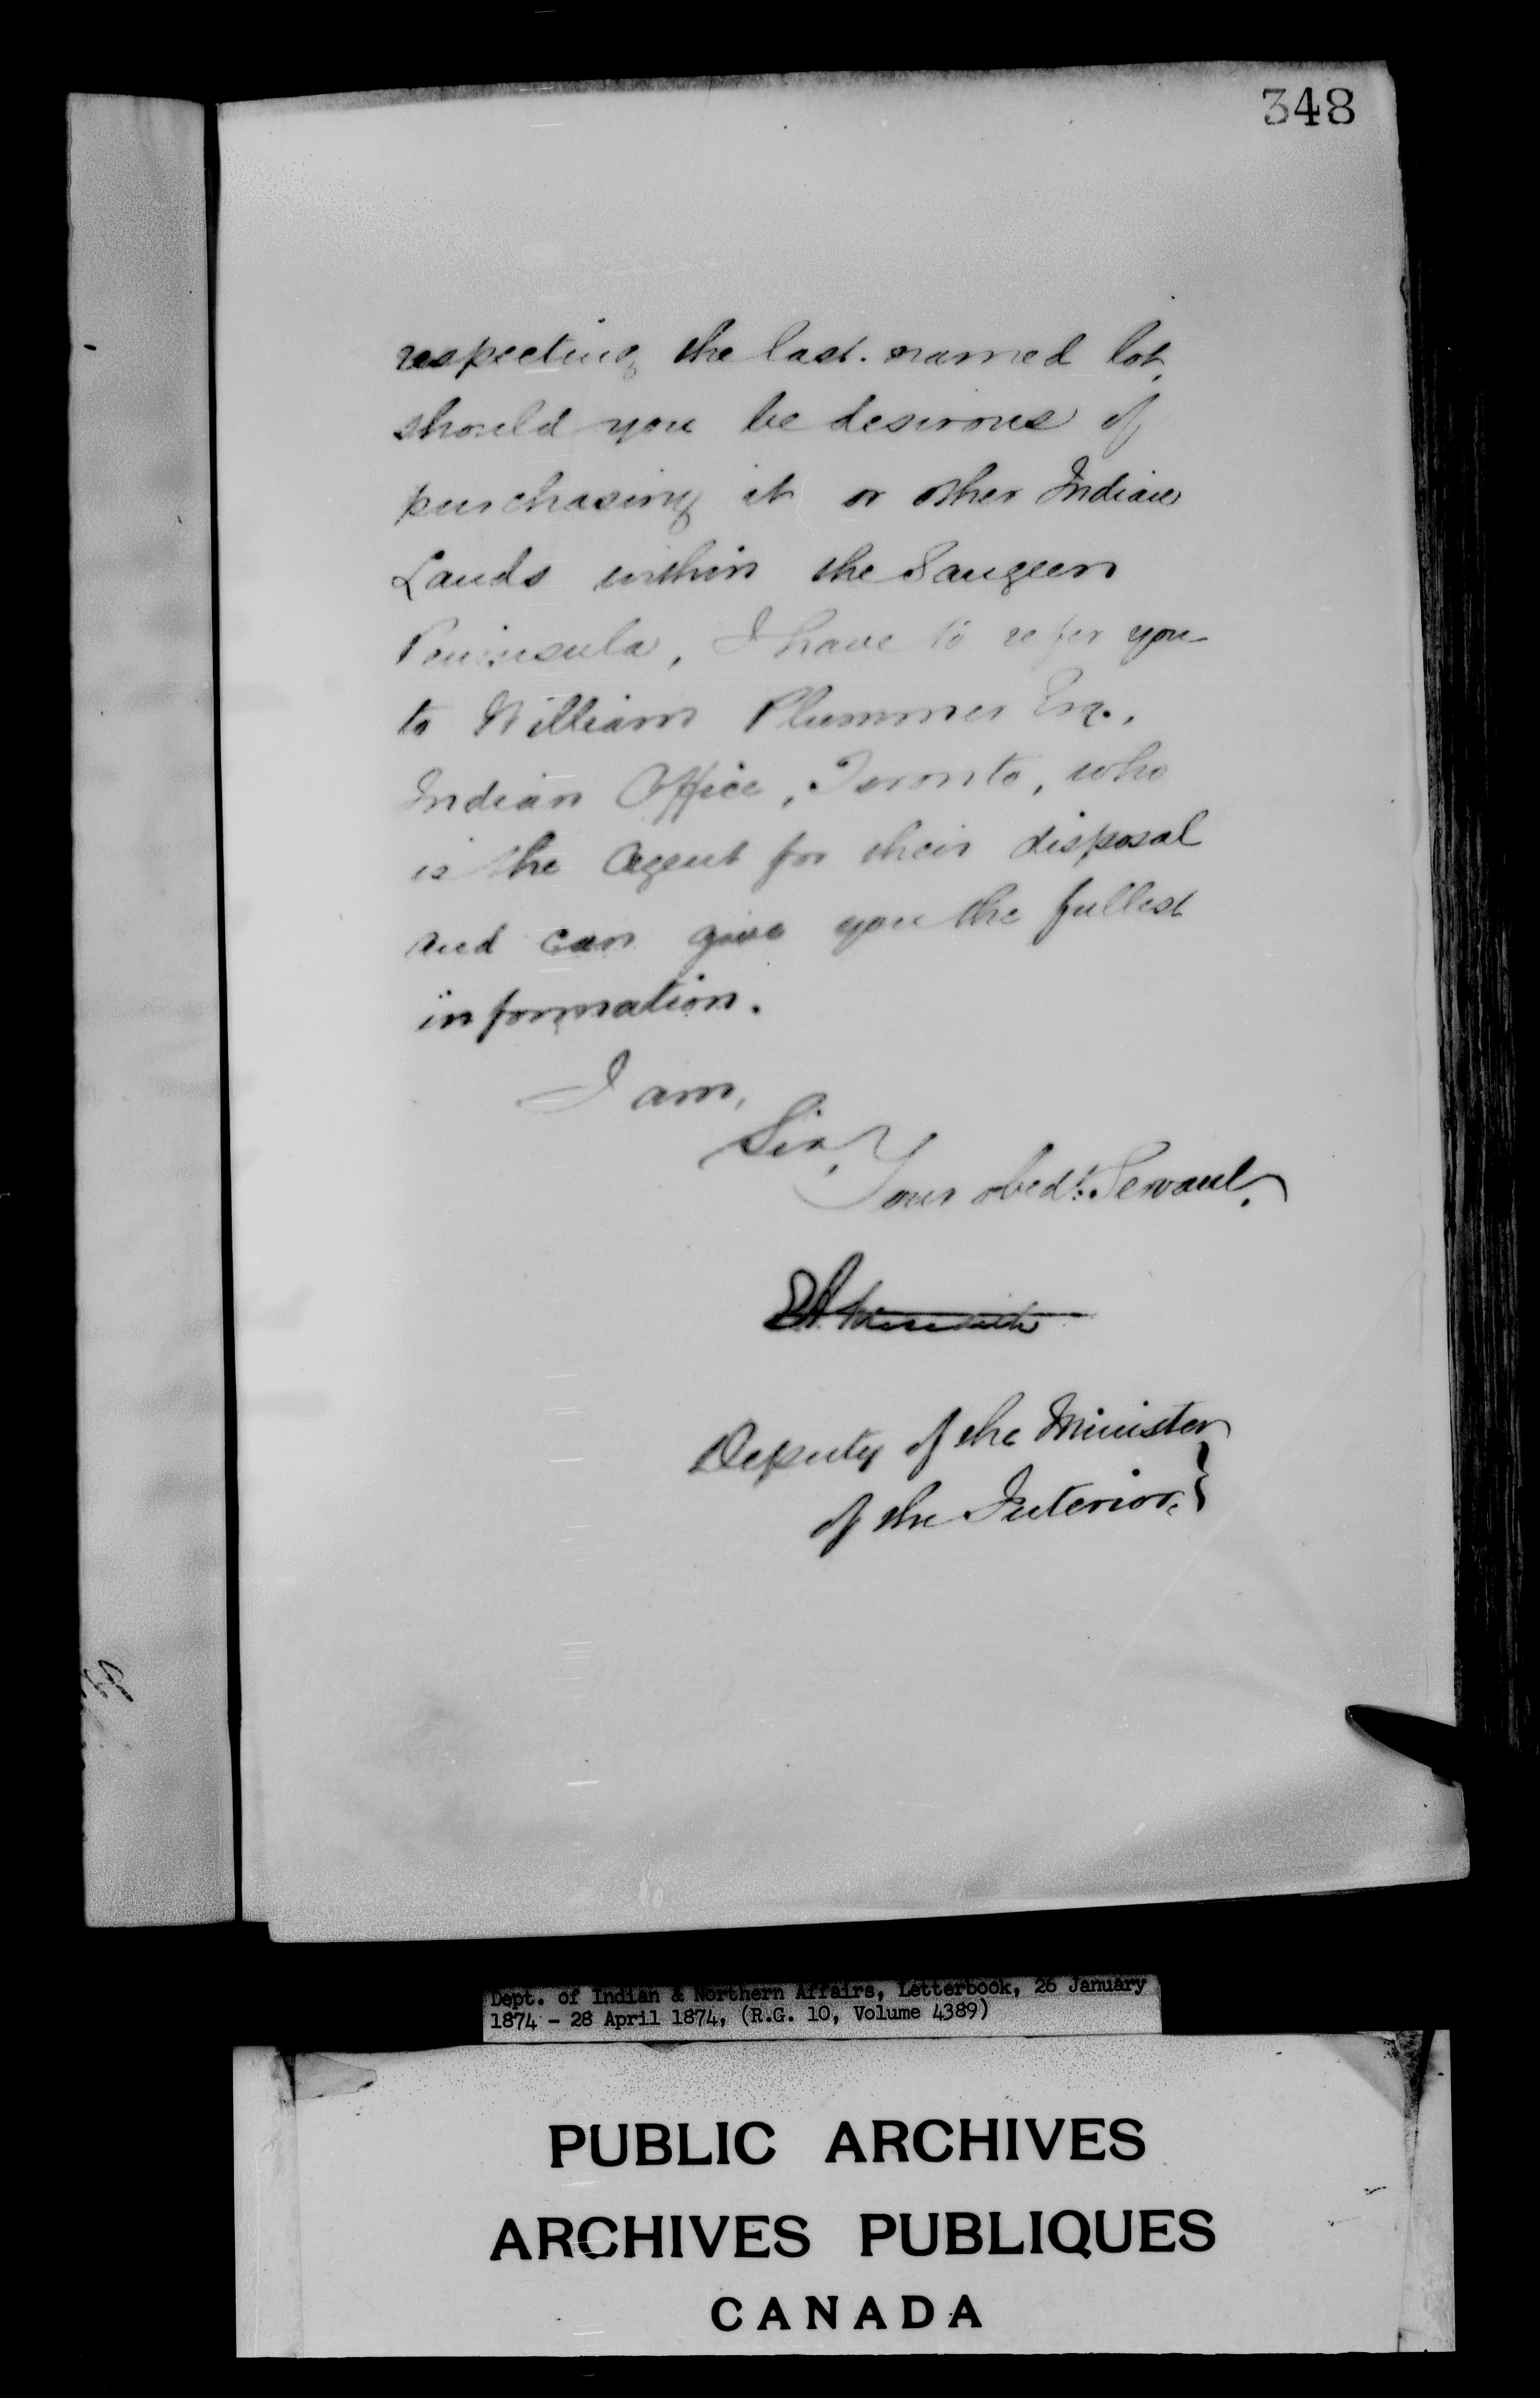 348
respecting the last. named lot,
should you be desirous of
purchasing it or other Indian
Lands within the Saugeen
Peninsula, I have to refer you
to William Plummer Esq.,
Indian Office, Toronto, who
is the Agent for their disposal
and can give you the fullest
information.
I am,
Sir,
Your obedt. Servant,
E.A. Meredith
Deputy of the Minister
of the Interior.
Dept. of Indian & Northern Affairs, Letterbook, 26 January
1874 - 28 April 1874, (R.G. 10, Volume 4389)
PUBLIC ARCHIVES
ARCHIVES PUBLIQUES
CANADA